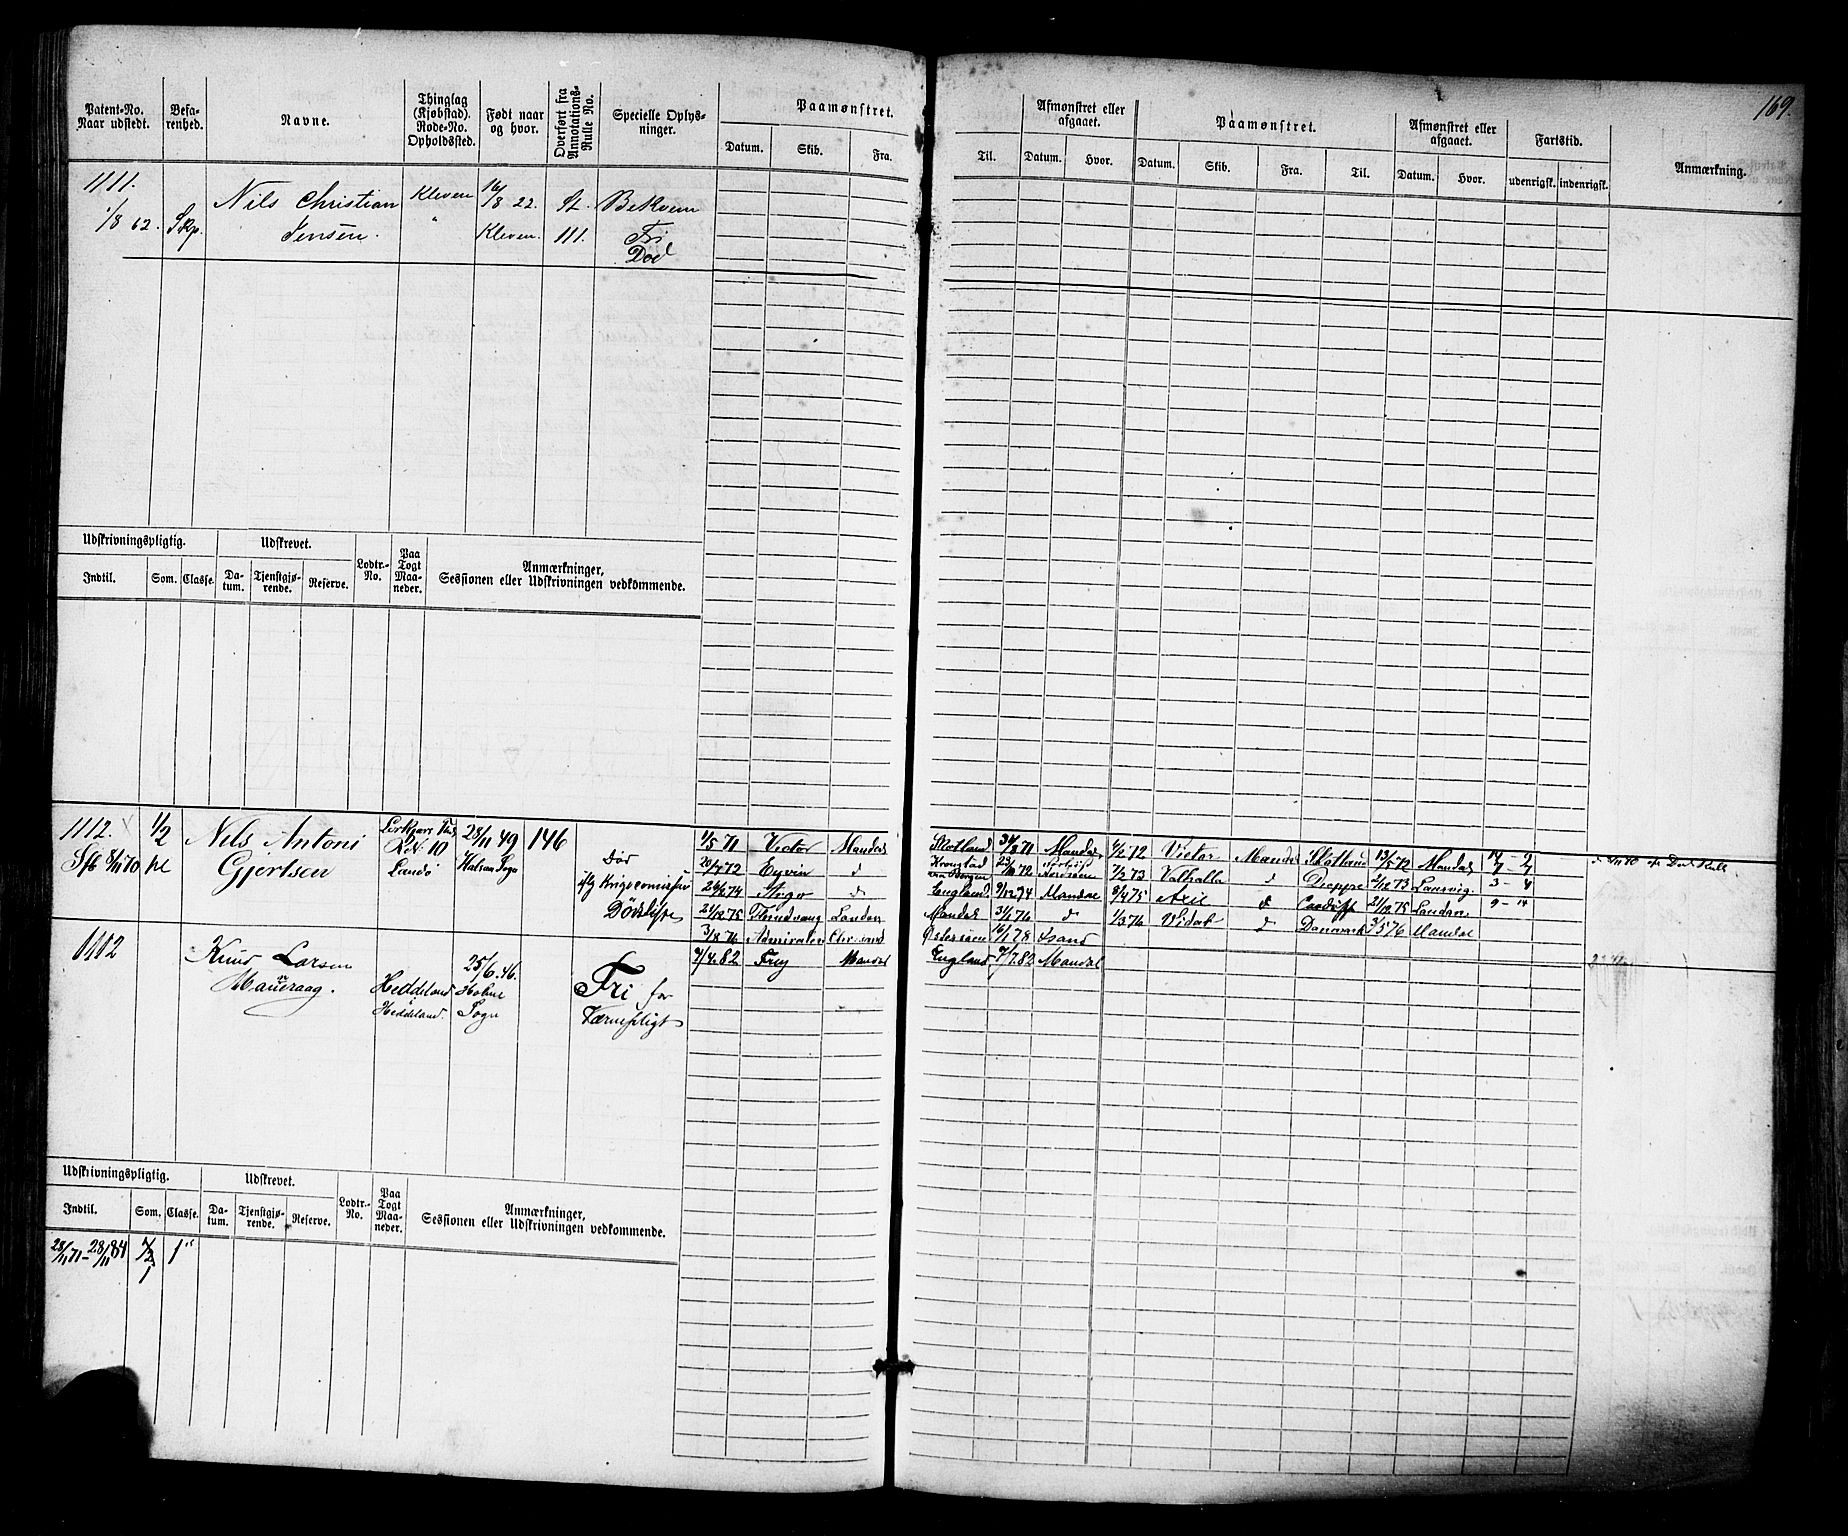 169.
Patent-No. Naar udstedt.
Befarenhed.
Navne.
Thinglag (Kjøbstad). Rode-No. Opholdssted.
Født naar og hvor.
Overført fra Annotations-Rulle No.
Specielle Oplysninger.
Paamønstret.
Datum. Skib. Fra.
Til.
Afmønstret eller afgaaet.
Datum. Hvor.
Paamønstret.
Datum. Skib. Fra. Til.
Afmønstret eller afgaaet.
Datum. Hvor.
Fartstid.
udenrigsk. indenrigsk.
Anmærkning.
1111. Nils Christian Kleven 16/8 22. St. Bekvem
1/8 62. Skp. Jensen. " Kleven. 111. Fri
Død
Udskrivningspligtig. Udskrevet. Lodtr.-No. Paa Togt Maaneder. Anmærkninger, Sessionen eller Udskrivningen vedkommende.
Indtil. Som. Classe. Datum. Tjenstgjørende. Reserve.
1112. 1/2 Nils Antoni 10 28/11 49 146
8/11 70 Gjertsen Landø Halsaa Sogn
Død
Dødsliste
1/5 71 Victor Mandal Skotland 31/8 71 Mandal 4/6 72 Victor Mandal Skotland 13/5 72 Mandal
20/7 72 Eyvin d Kronstad Bergen 7/2 73 Valhalla d Dieppe 2/12 73 Laurvig. 3 - 4
24/6 74 d England 9/12 74 Mandal 8/4 75 Axel d Cardiff 21/12 75 London 9 - 14
21/12 75 London Mandal 3/1 76 d 1/3 76 Vidar d Danmark 3/5 76 Mandal
3/8 76 Admiralen Østersøen 16/1 78
1112 Knud Larsen 25/6. 46. Fri for 7/4 82 Frey Mandal England 7/7 82 Mandal
Maueraag. Heddeland Holme Værnepligt
Heddeland. Sogn
Udskrivningspligtig. Udskrevet. Lodtr.-No. Paa Togt Maaneder. Anmærkninger, Sessionen eller Udskrivningen vedkommende.
Indtil. Som. Classe. Datum. Tjenstgjørende. Reserve.
28/11 71 - 28/11 84 1/2 1
1